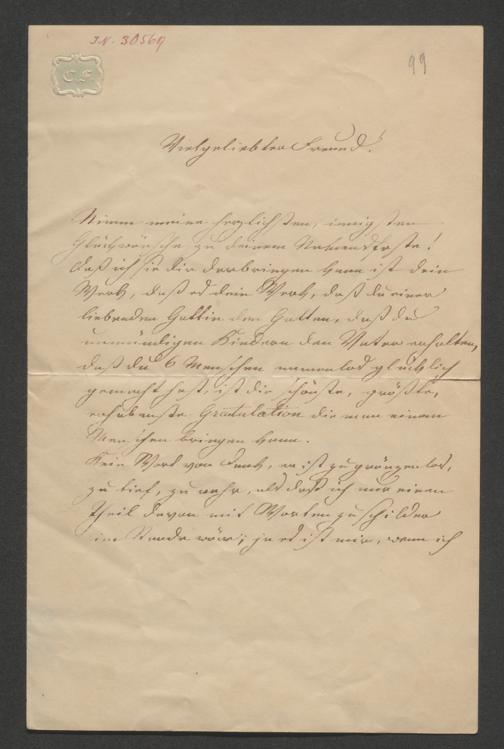 I.N. 30569
99
C F
Vielgeliebter Freund!
Nimm meine herzlichsten, innigsten
Glückwünsche zu deinem Namensfeste!
Daß ich sie dir darbringen kann ist dein
Werk, daß es dein Werk, daß du einer
liebenden Gattin den Gatten, daß du
unmündigen Kindern den Vater erhalten,
daß du 6 Menschen namenlos glücklich
gemacht hast, ist die schönste, größte,
erhabenste Gratulation die man einem
Menschen bringen kann.
Kein Wort von Dank, er ist zu gränzenlos,
zu tief, zu wahr, als daß ich nur einen
Theil davon mit Worten zu schildern
im Stande wäre; ja es ist mir, wenn ich